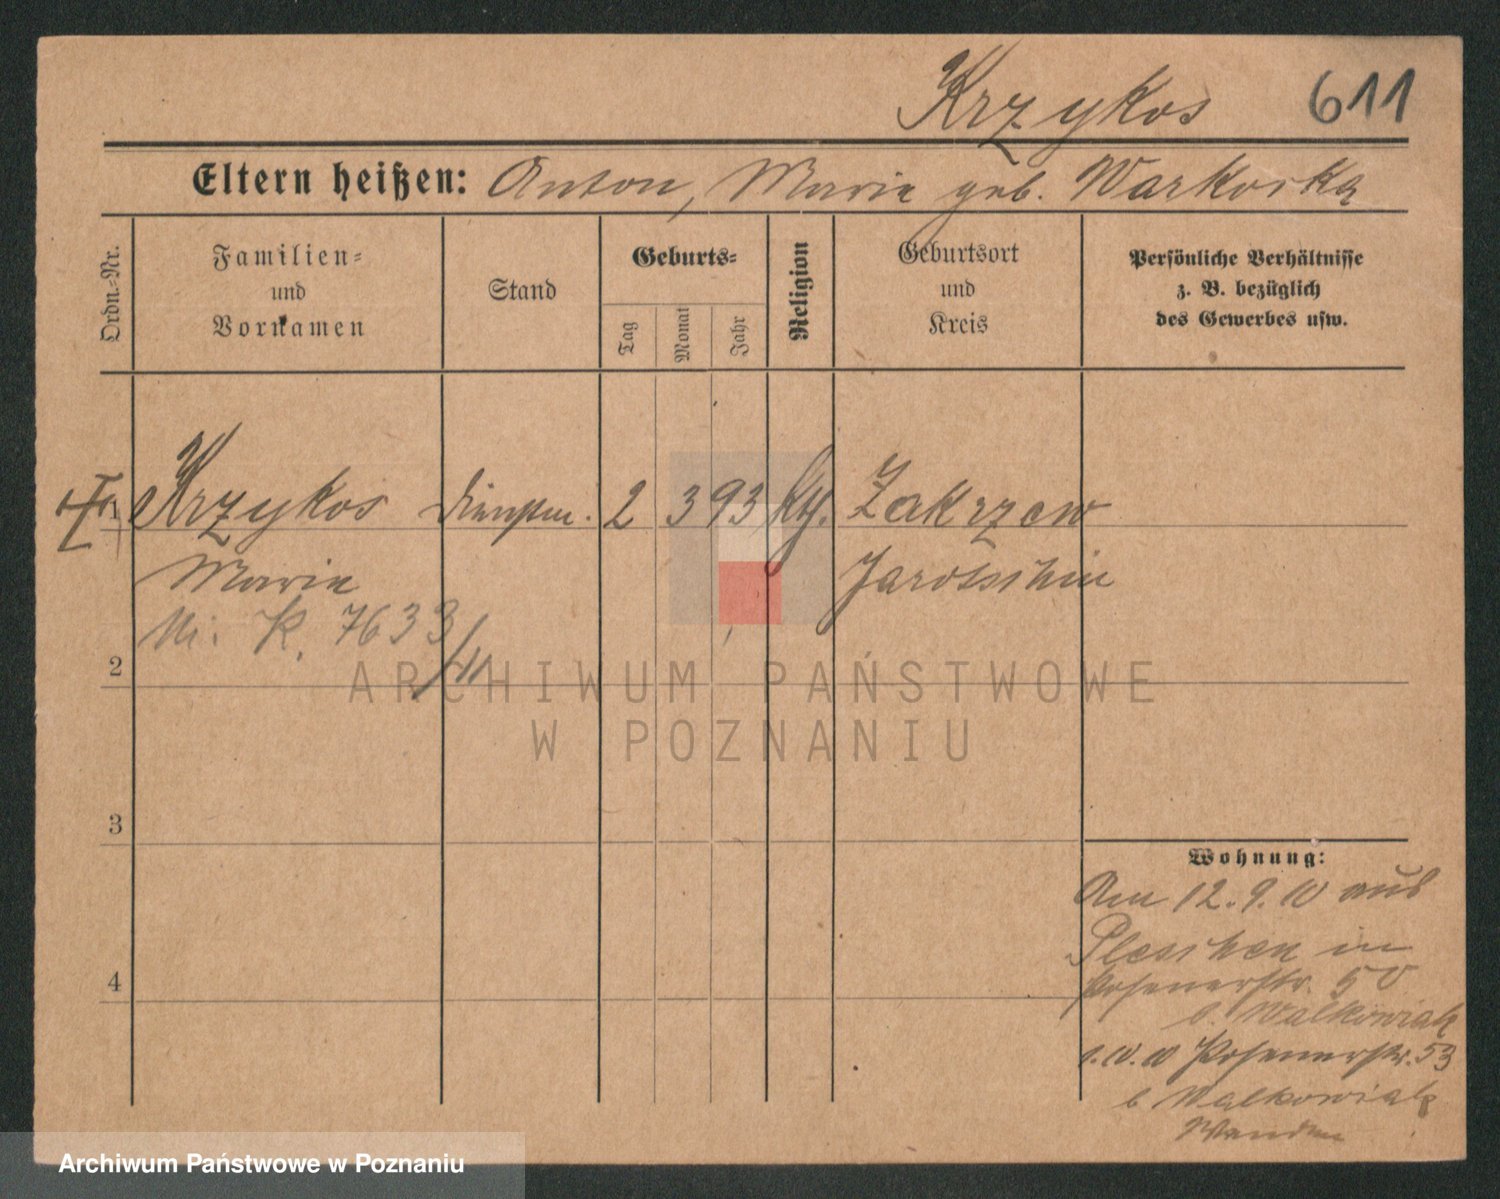 Krzykos 611
Eltern heißen: Anton, Marie geb. Warkocka
Ordn.-Nr.
Familien-
und
Vornamen
Stand
Geburts-
Tag
Monat
Jahr
Religion
Geburtsort
und
Kreis
Persönliche Verhältnisse
z. B. bezüglich
des Gewerbes usw.
1 Krzykos 2 3 93 kth. Zakrzew
Marie Jarotschin
K. 7633/11
2
3
4
Wohnung:
Am 12.9.10 aus
Pleschen in
Posenerstr. 50
b. Walkowiak
1.10.10 Posenerstr. 53
b Walkowiak
ARCHIWUM PAŃSTWOWE
W POZNANIU
Archiwum Państwowe w Poznaniu